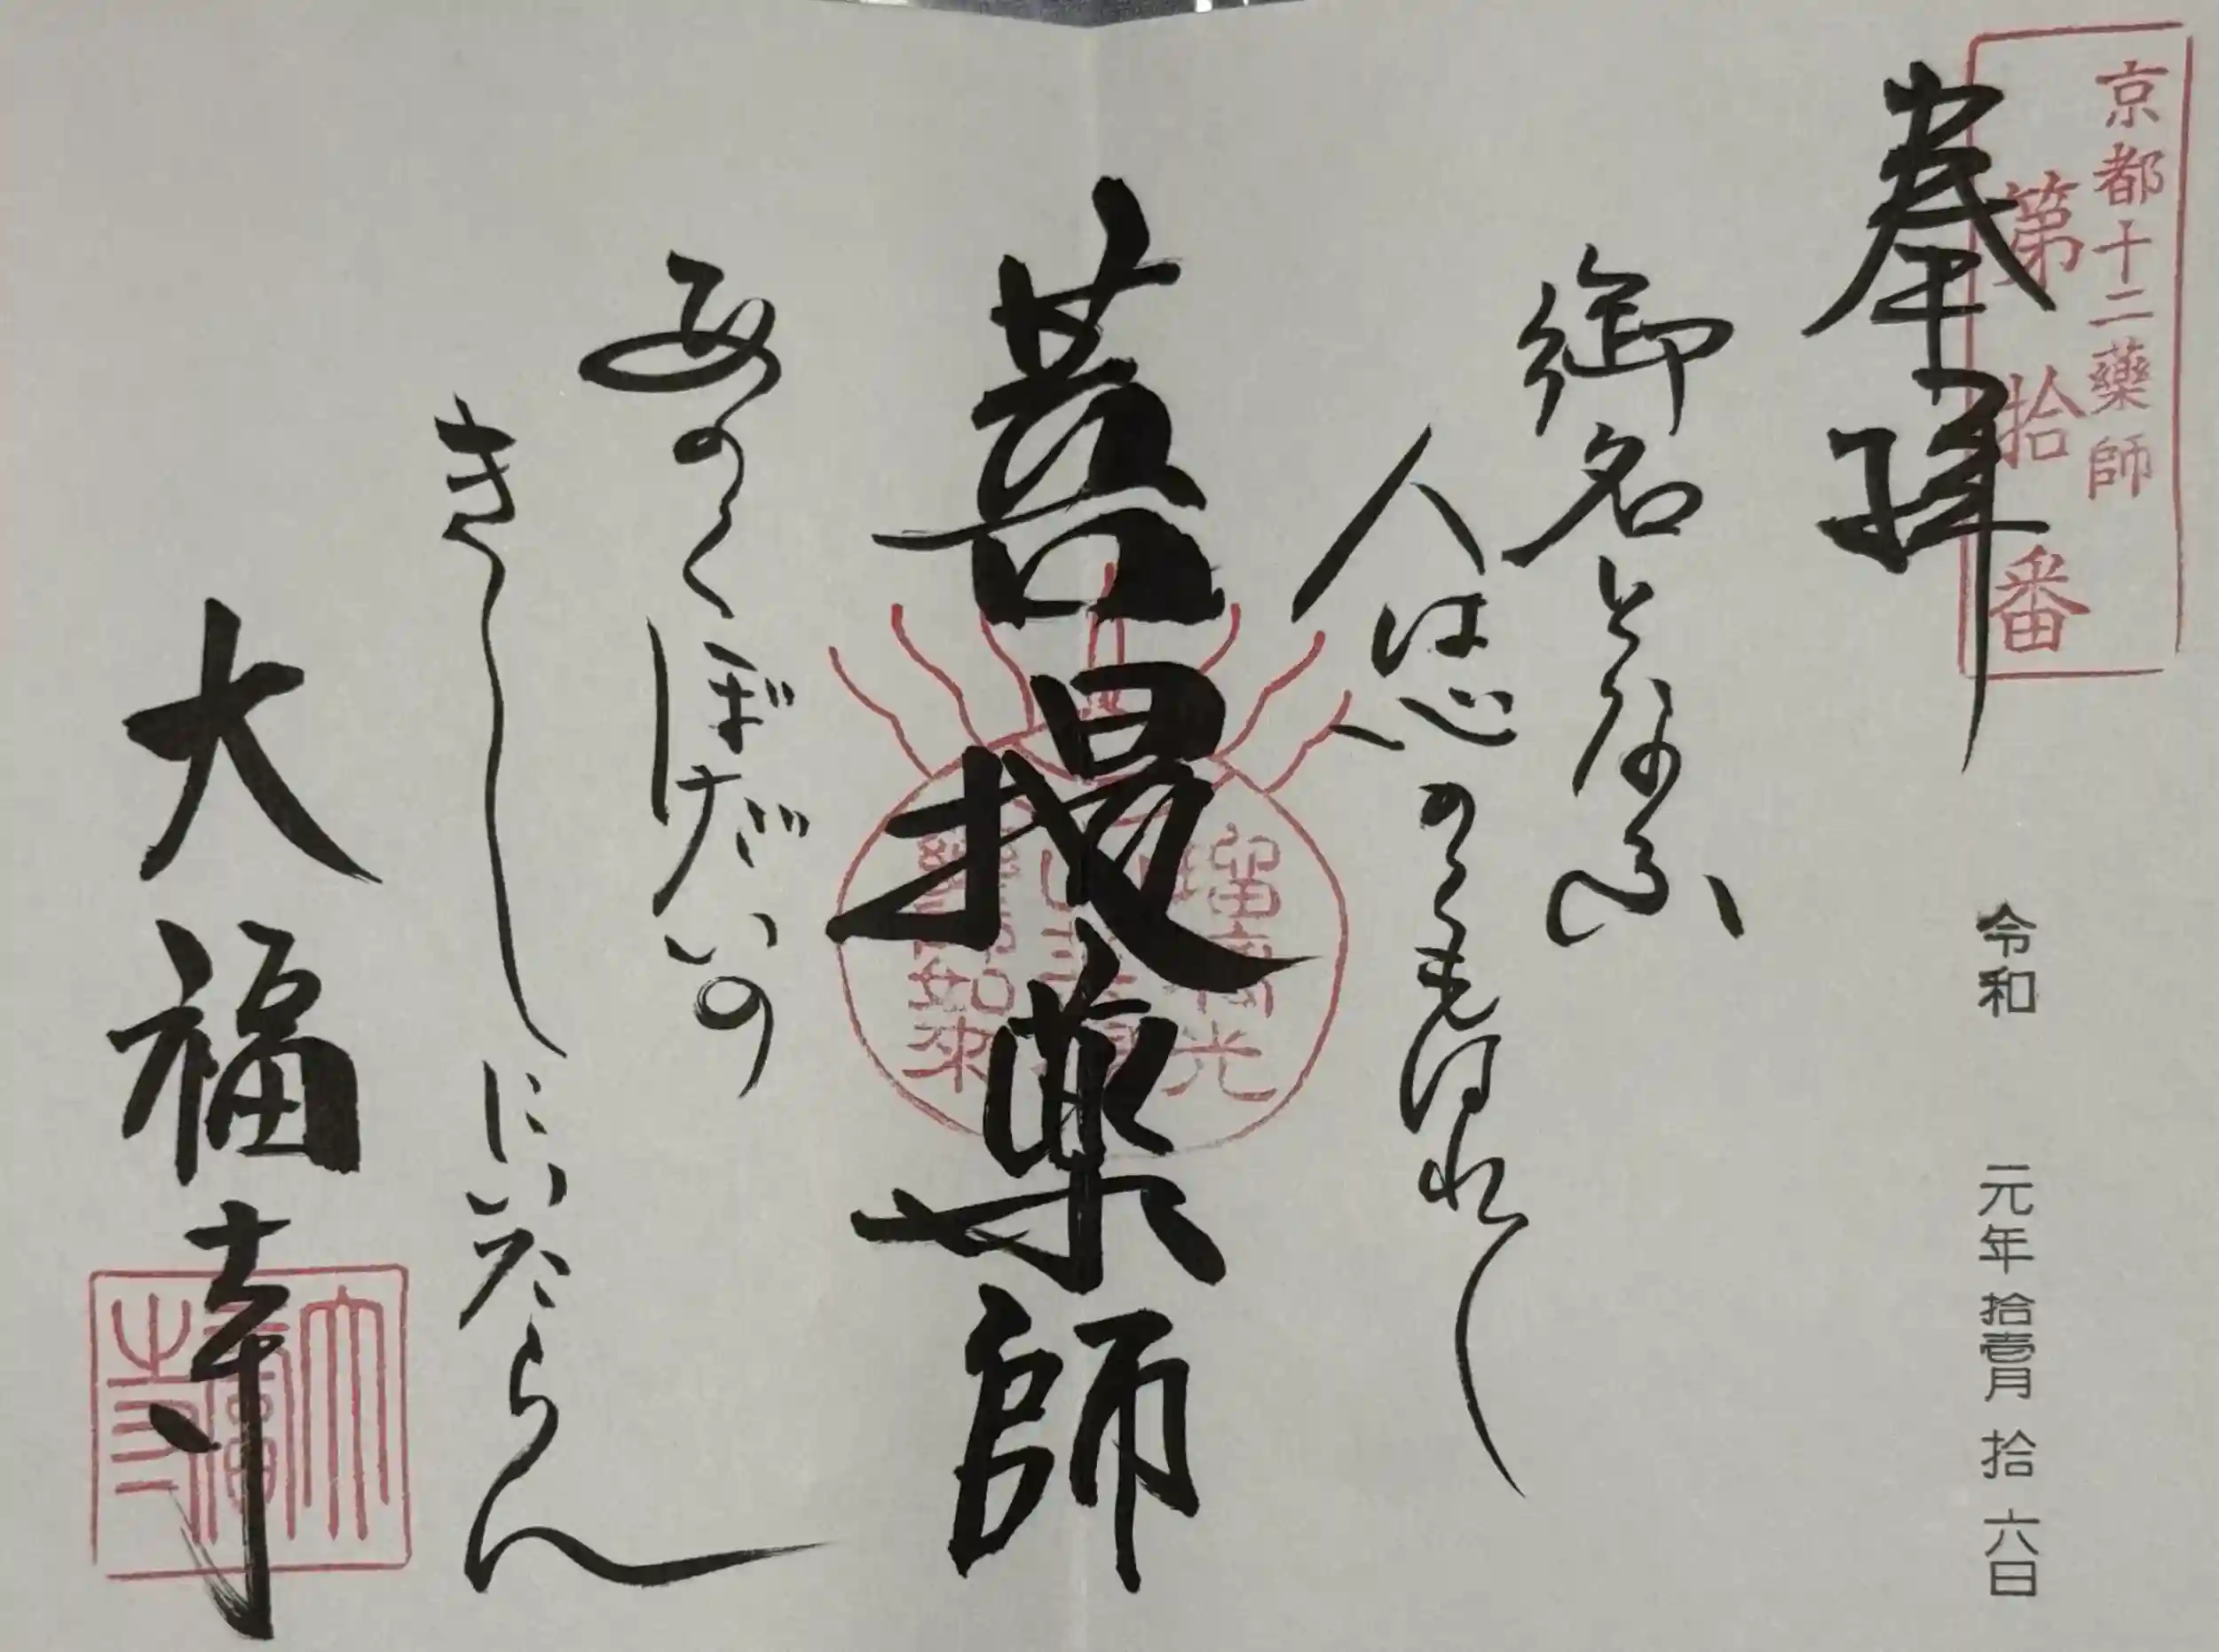 京都十二薬師
第拾番
奉拝
令和 元年 拾壱月 拾六日
御名となふ
人は心のくもはれて
菩提薬師
あのくぼだいの
きしにいたらん
大福寺
瑠璃光
如来
大福寺